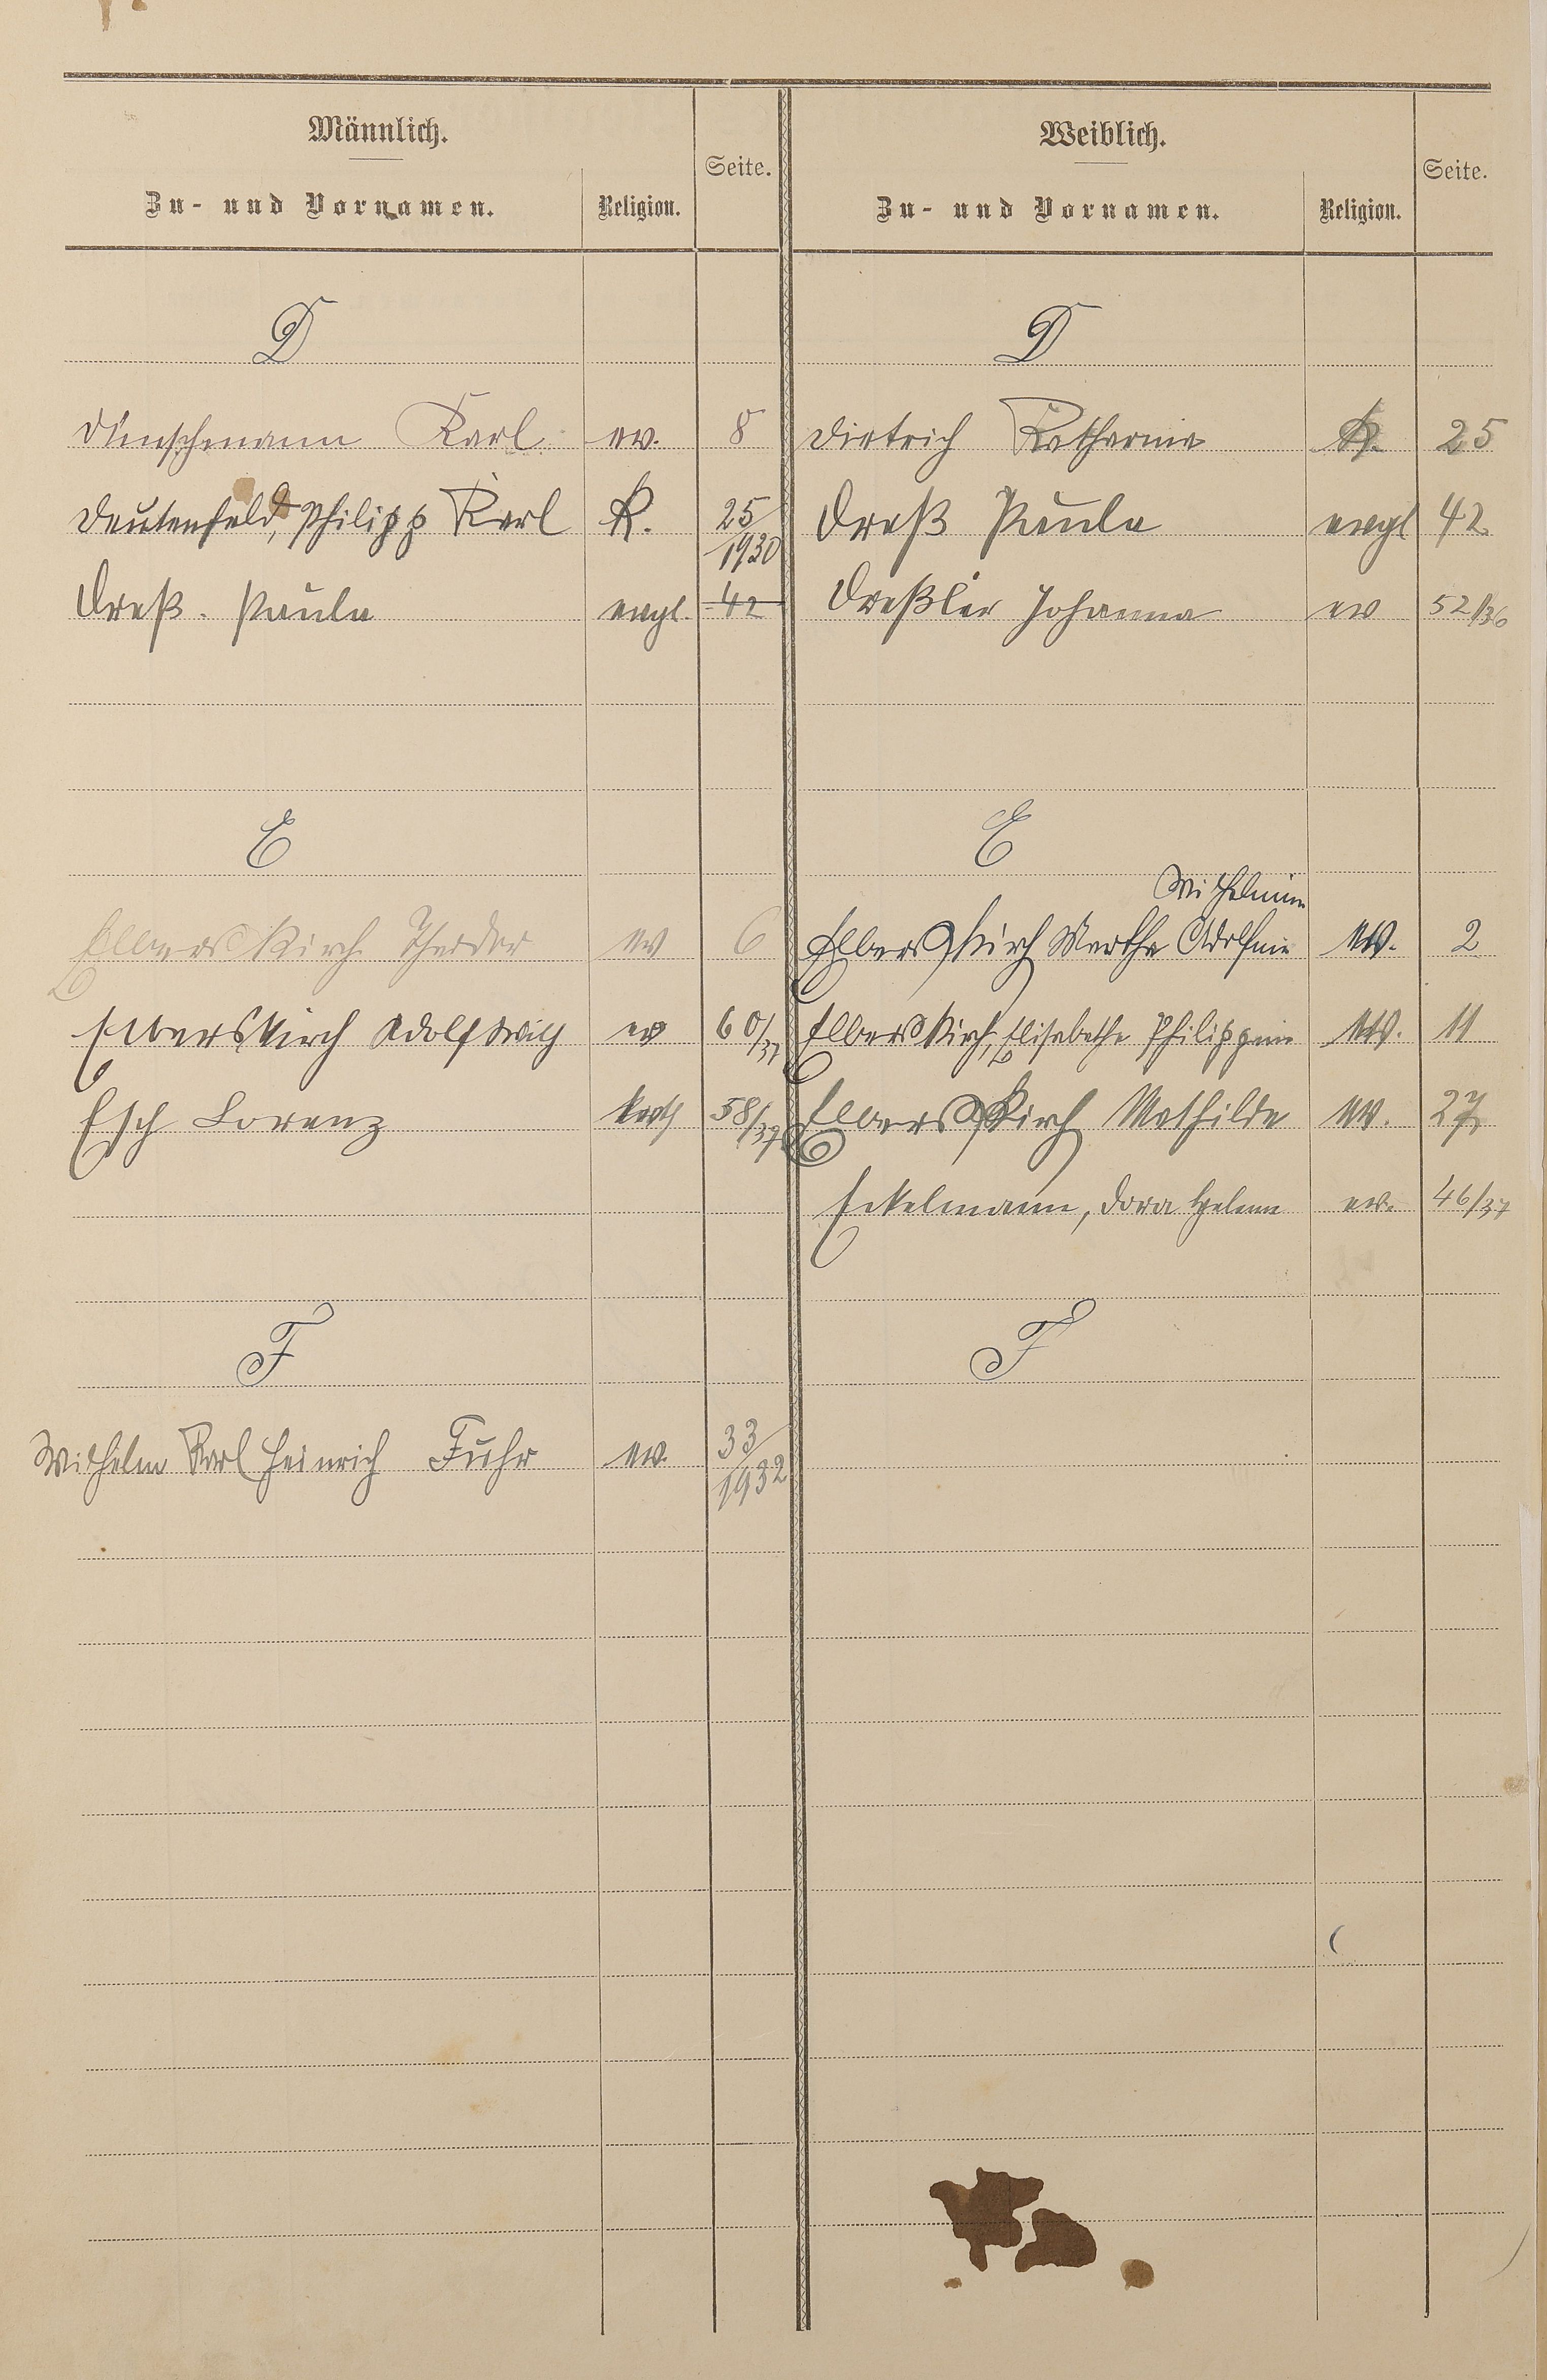 Männlich.
Zu- und Vornamen. Religion. Seite.
D
Dünschmann Karl ev. 8
Deutenfeld, Philipp Karl K. 25/1930
Dreß. Paula evgl. 42
E
Elberskirch Theodor ev 6
Elberskirch Adolf ev 60/37
Esch Lorenz kath 58/37
F
Wilhelm Karl Heinrich Fuhr ev. 33/1932
Weiblich.
Zu- und Vornamen. Religion. Seite.
D
Dietrich Katharina K. 25
Dreß Paula evgl 42
Dreßler Johanna ev 52/36
E
Wilhelmine
Elberskirch Martha Adolfine ev. 2
Elberskirch, Elisabetha Philippine ev. 11
Elberskirch Mathilde ev. 27
Eckelmann, Dora Helene ev. 46/37
F